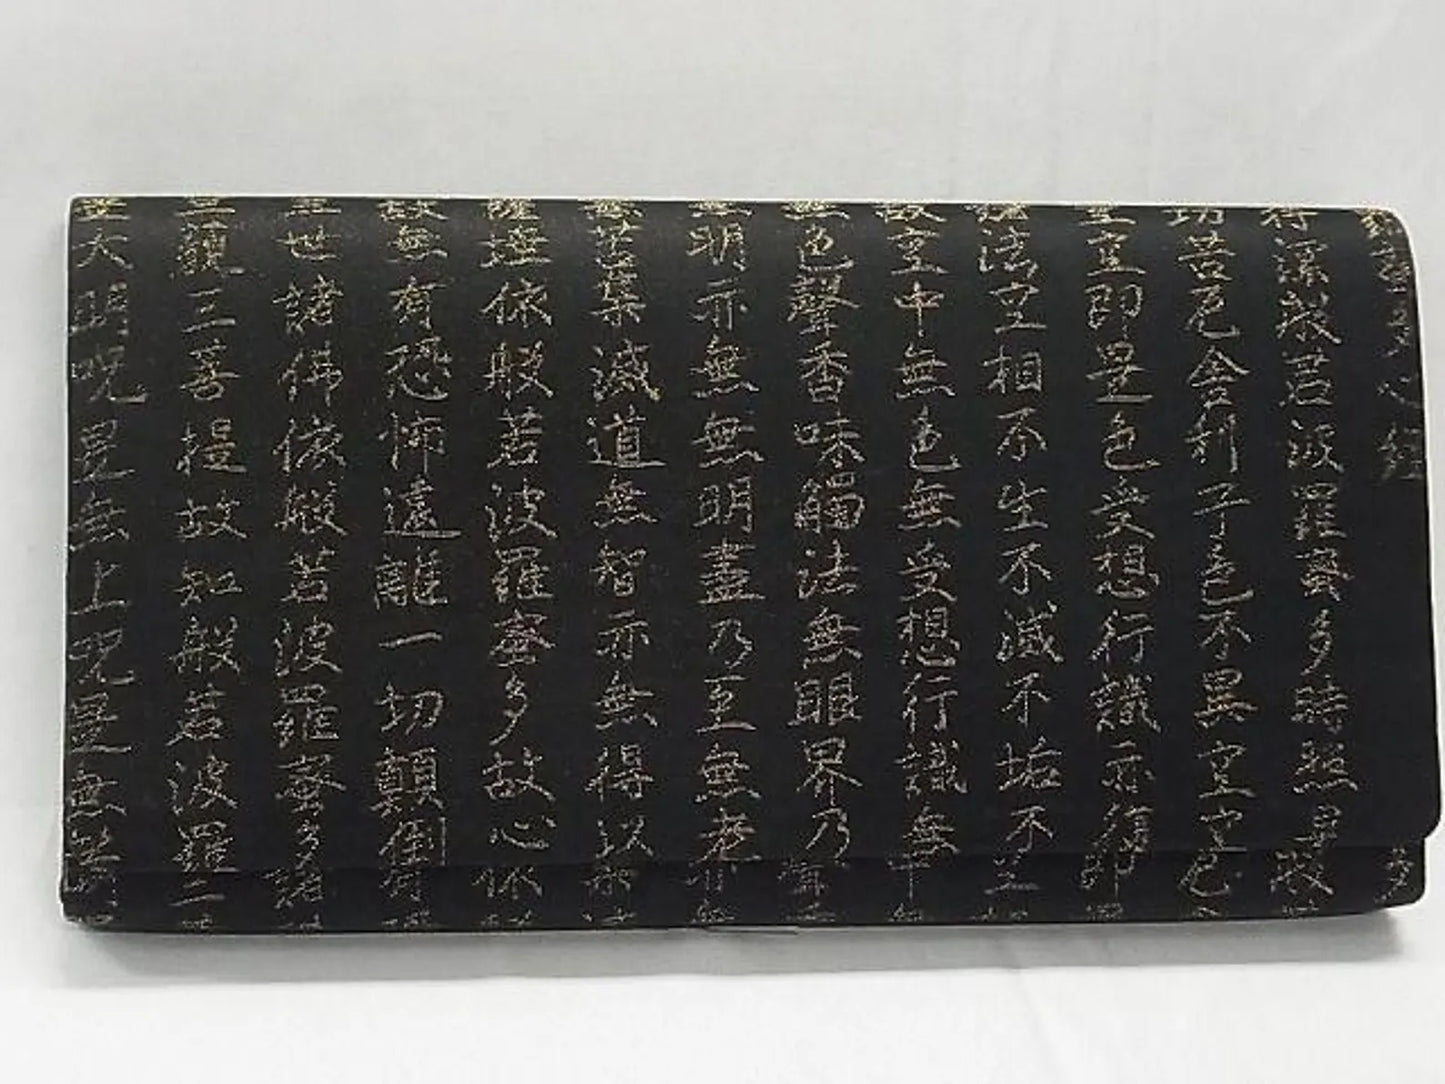 心經
深般若波羅蜜多時照見
苦厄舍利子色不異空空
空即是色受想行識亦復
法空相不生不滅不垢不
空中無色無受想行識無
色聲香味觸法無眼界乃
明亦無無明盡乃至無老
苦集滅道無智亦無得以
埵依般若波羅蜜多故心
無有恐怖遠離一切顛倒
世諸佛依般若波羅蜜多
藐三菩提故知般若波羅
大明呪是無上呪是無